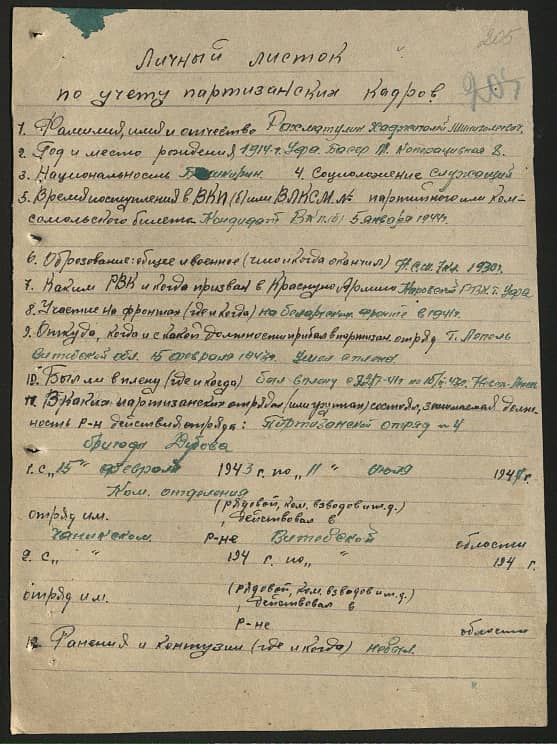 205
205
Личный листок
по учету партизанских кадров
1. Фамилия, имя и отчество Рахматулин
2. Год и место рождения 1914 г. Уфа. Басср 8.
3. Национальность Башкирин. 4. Соцположение служащий
5. Время поступления в ВКП(б) или ВЛКСМ № партийного или ком-
сомольского билета Кондидат ВКП(б) 5 января 1944г.
6. Образование: общее и военное (что и когда окончил) Н.С.Ш. 7кл. 1930г.
7. Каким РВК и когда призван в Красную Армию РВК г. Уфа
8. Участие на фронтах (где и когда) на беларуском фронте в 1941г.
9. Откуда, когда и с какой должности прибыл в партизан. отряд г. Лепель
Витебской обл. 15 февраля Ушол с плена.
10. Был ли в плену (где и когда) был в плену с
11. В каких партизанских отрядах (или группах) состоял, занимаемая долж-
ность р-н действия отряда: Партизанской отряд №4
бригада Дубова
1. с „15" февраля 1943 г. по „11" июля 194 г.
Ком. отделения
(рядовой, ком. взводов и т.д.)
отряд им. , действовал в
Чашникском р-не Витебской области
2. с „ " 194 г. по „ " 194 г.
(рядовой, ком. взводов и т.д.)
отряд им. , действовал в
р-не области
12. Ранения и контузии (где и когда) небыл.